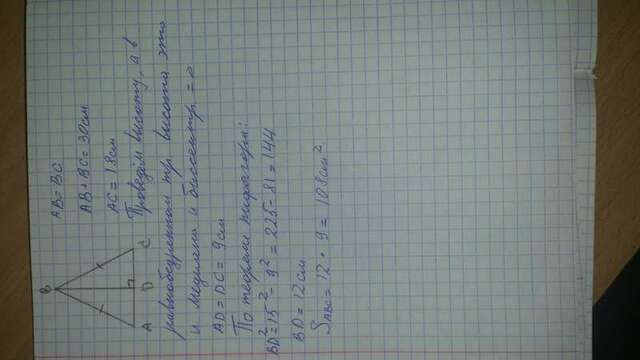 B
A D C
AB = BC
AB + BC = 30см
AC = 18см
Проведём высоту, а в
равнобедренном тр. высота это
и медиана и биссектр. =>
AD = DC = 9см
По теореме пифагора:
BD² = 15² - 9² = 225 - 81 = 144
BD = 12см
S ABC = 12 · 9 = 108см²